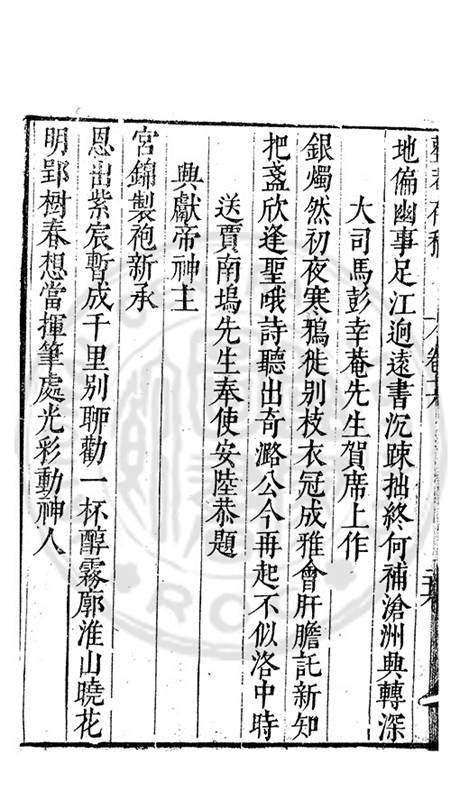 卷六
地偏幽事足江迥遠書沉踈拙終何補滄洲興轉深
大司馬彭幸菴先生賀席上作
銀燭然初夜寒鴉徙別枝衣冠成雅會肝膽託新知
把盞欣逢聖哦詩聽出奇潞公今再起不似洛中時
送賈南塢先生奉使安陸恭題
興獻帝神主
宮錦製袍新承
恩出紫宸暫成千里別聊勸一杯醇霧廓淮山曉花
明郢樹春想當揮筆處光彩動神人